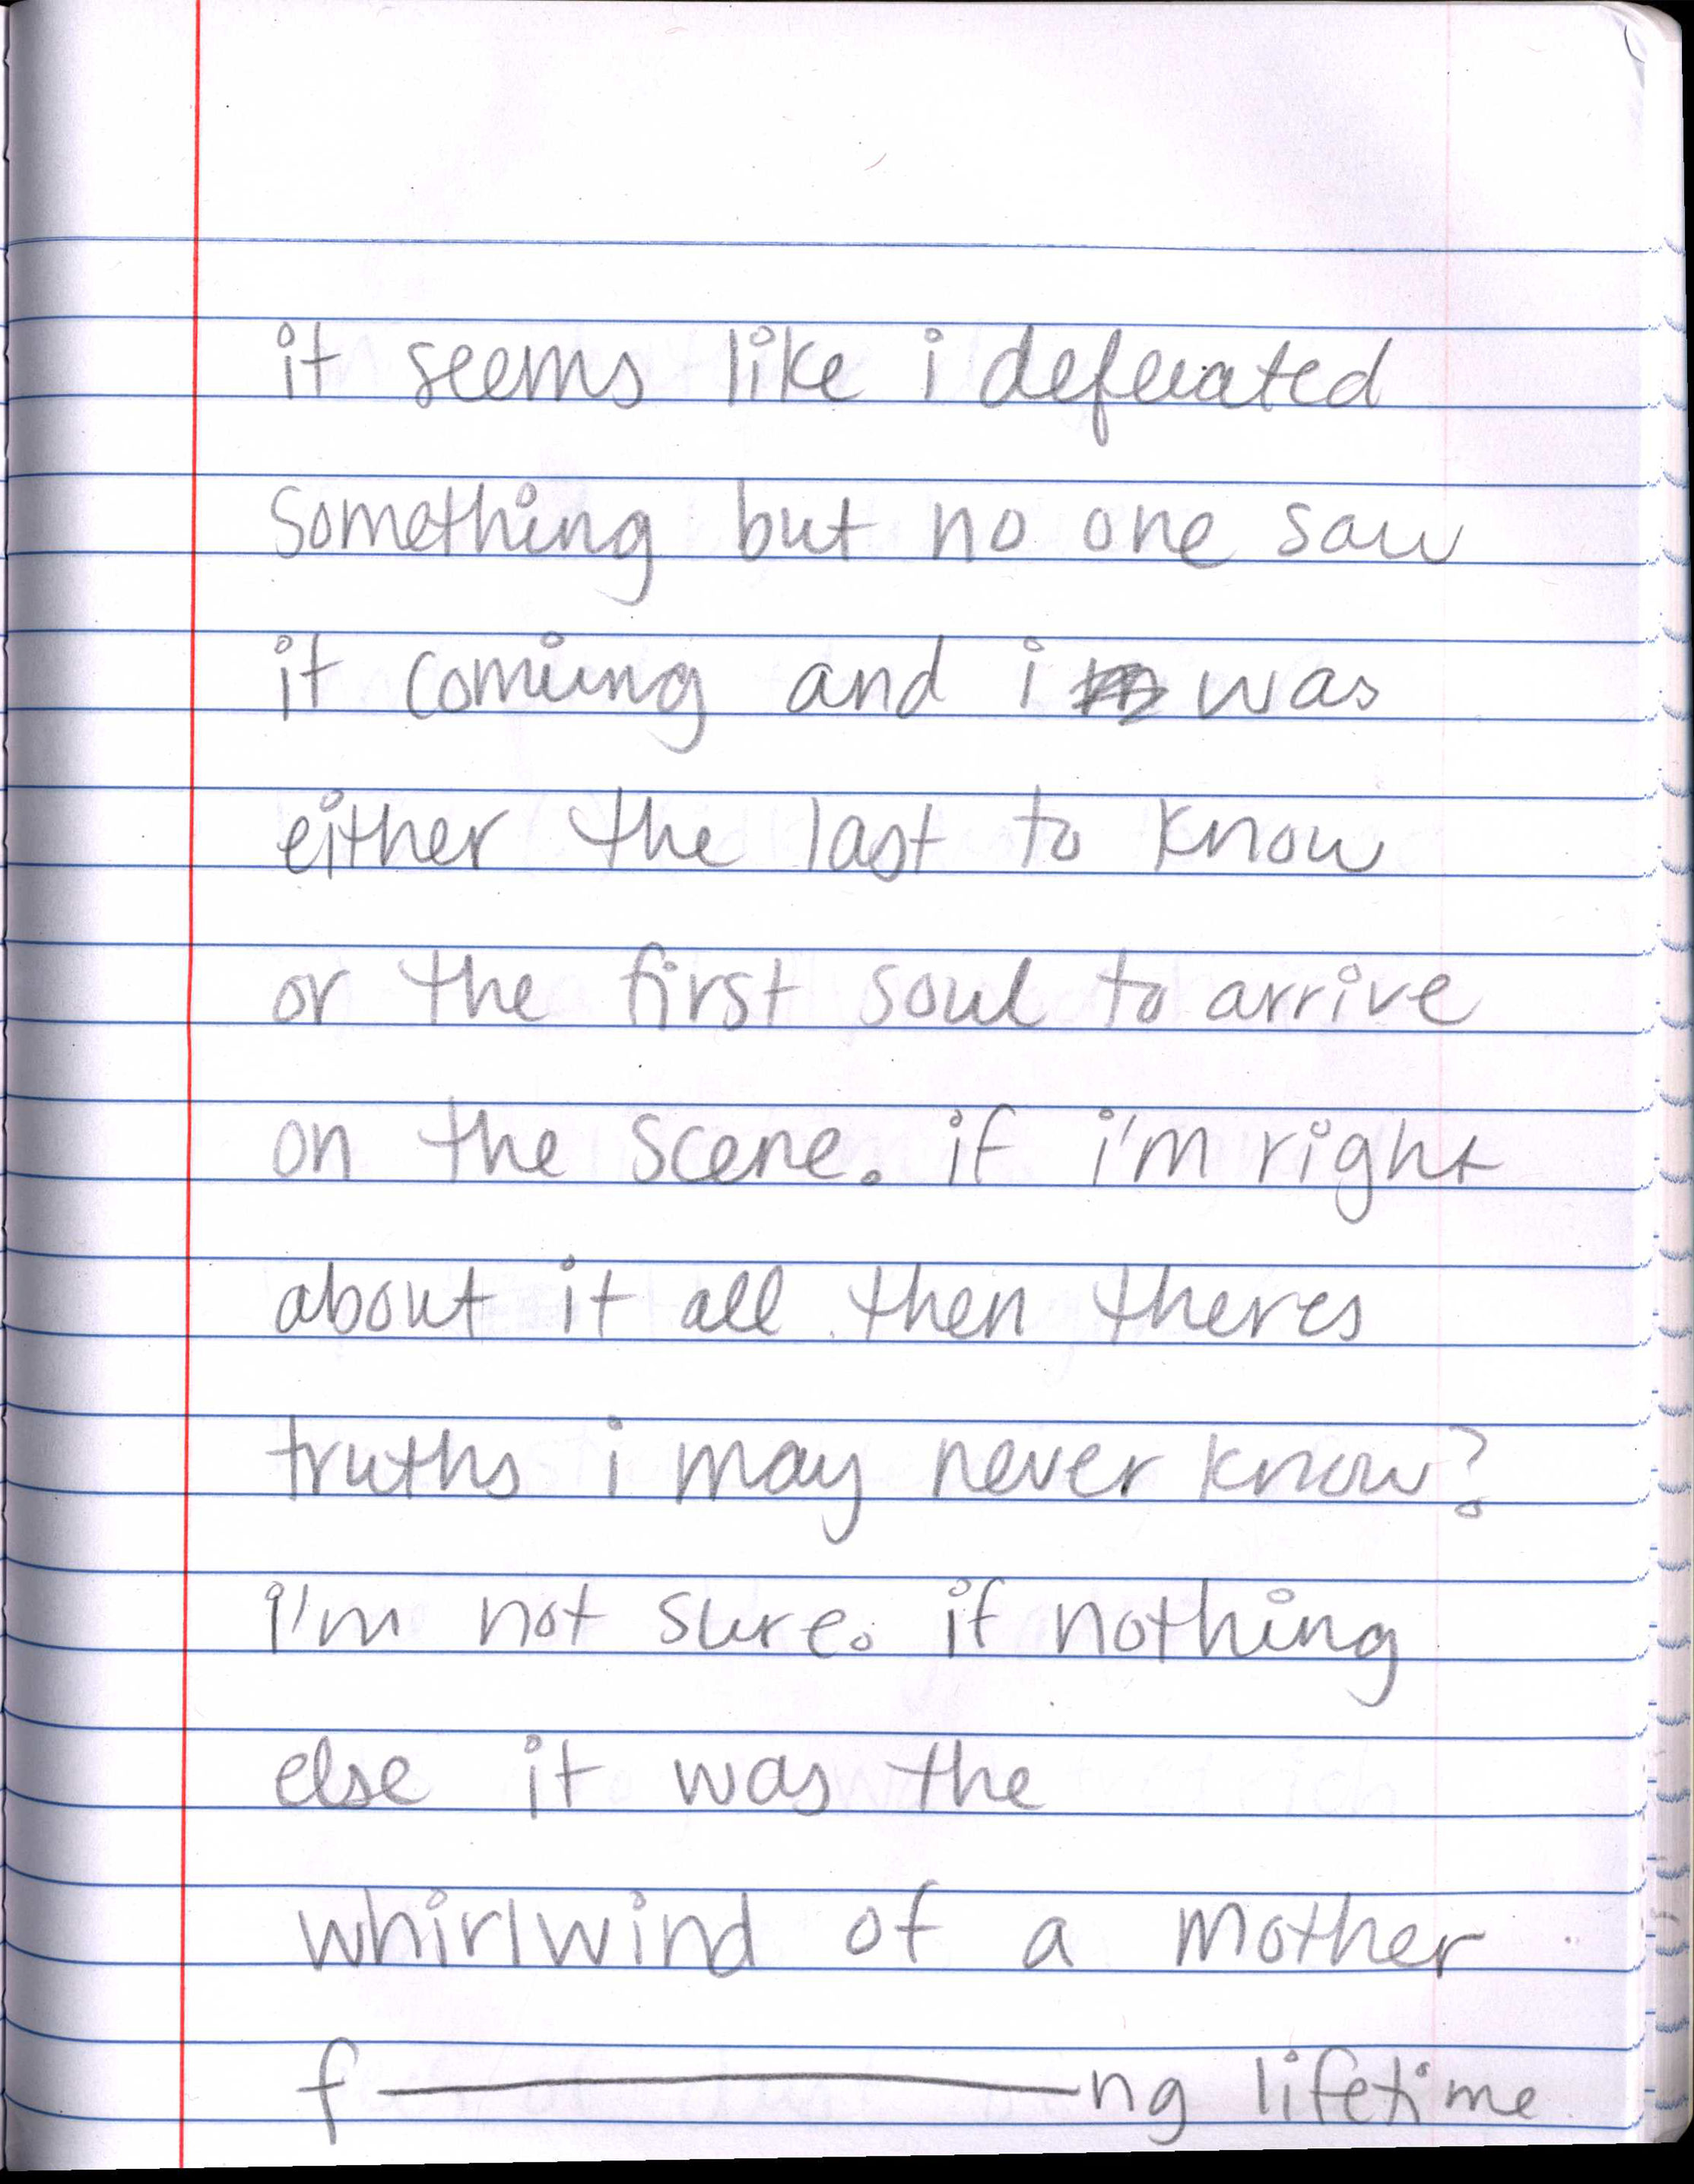 it seems like i defeated
something but no one saw
it coming and i was
either the last to know
or the first soul to arrive
on the scene. if i'm right
about it all then theres
truths i may never know?
i'm not sure. if nothing
else it was the
whirlwind of a mother
f————ng lifetime